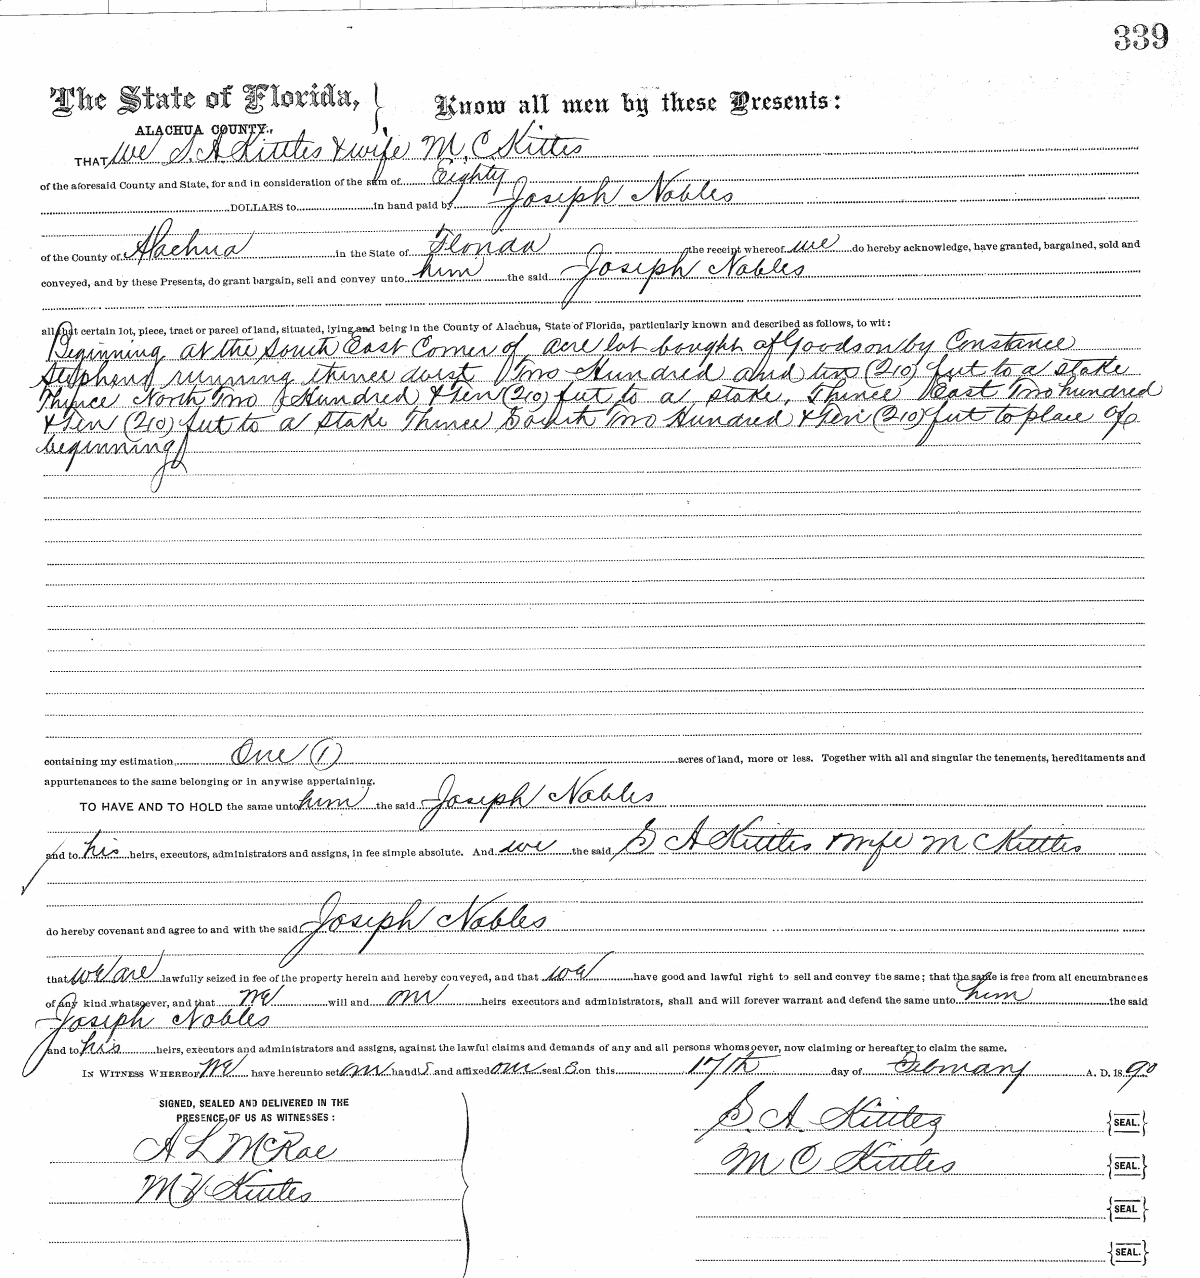 339
The State of Florida, Know all men by these Presents:
ALACHUA COUNTY.
THAT we S. A Kittles & wife M. C. Kittles
of the aforesaid County and State, for and in consideration of the sum of Eighty
DOLLARS to in hand paid by Joseph Nobles
of the County of Alachua in the State of Florida the receipt whereof we do hereby acknowledge, have granted, bargained, sold and
conveyed, and by these Presents, do grant bargain, sell and convey unto him the said Joseph Nobles
all that certain lot, piece, tract or parcel of land, situated, lying and being in the County of Alachua, State of Florida, particularly known and described as follows, to wit:
Beginning at the South East Corner of acre lot bought of Goodson by Constance
Stephens running thince West Two Hundred and ten (210) feet to a stake
Thince North Two Hundred & Ten (210) feet to a stake, Thince East Two hundred
& Ten (210) feet to a stake Thince South Two Hundred & Ten (210) feet to place of
beginning
containing my estimation One (1) acres of land, more or less. Together with all and singular the tenements, hereditaments and
appurtenances to the same belonging or in anywise appertaining.
TO HAVE AND TO HOLD the same unto him the said Joseph Nobles
and to his heirs, executors, administrators and assigns, in fee simple absolute. And we the said S A Kittles & wife M C Kittles
do hereby covenant and agree to and with the said Joseph Nobles
that we are lawfully seized in fee of the property herein and hereby conveyed, and that we have good and lawful right to sell and convey the same; that the same is free from all encumbrances
of any kind whatsoever, and that we will and our heirs executors and administrators, shall and will forever warrant and defend the same unto him the said
Joseph Nobles
and to his heirs, executors and administrators and assigns, against the lawful claims and demands of any and all persons whomsoever, now claiming or hereafter to claim the same.
IN WITNESS WHEREOF we have hereunto set our hand s and affixed our seal s on this 17th day of February A. D. 1890
SIGNED, SEALED AND DELIVERED IN THE
PRESENCE OF US AS WITNESSES:
S. A. Kittles {SEAL.}
A L McRae
M C Kittles {SEAL.}
M Y Kittles
{SEAL}
{SEAL.}